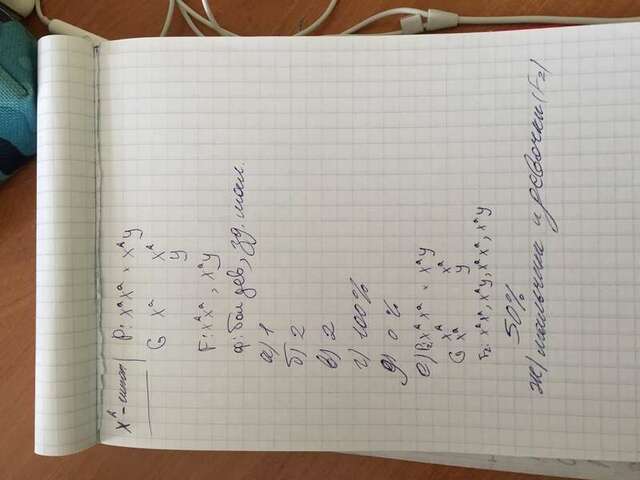 Xᴬ -
P: XᵃXᵃ × XᴬY
G Xᵃ Xᴬ
Y
F: XᴬXᵃ, XᵃY
Ф: бол дев, зд. мал.
а) 1
б) 2
в) 2
г) 100%
д) 0%
е) P₂: XᴬXᵃ × XᵃY
G Xᴬ Xᵃ
Xᵃ Y
F₂: XᴬXᵃ, XᴬY, XᵃXᵃ, XᵃY
50%
ж) мальчики и девочки (F₂)